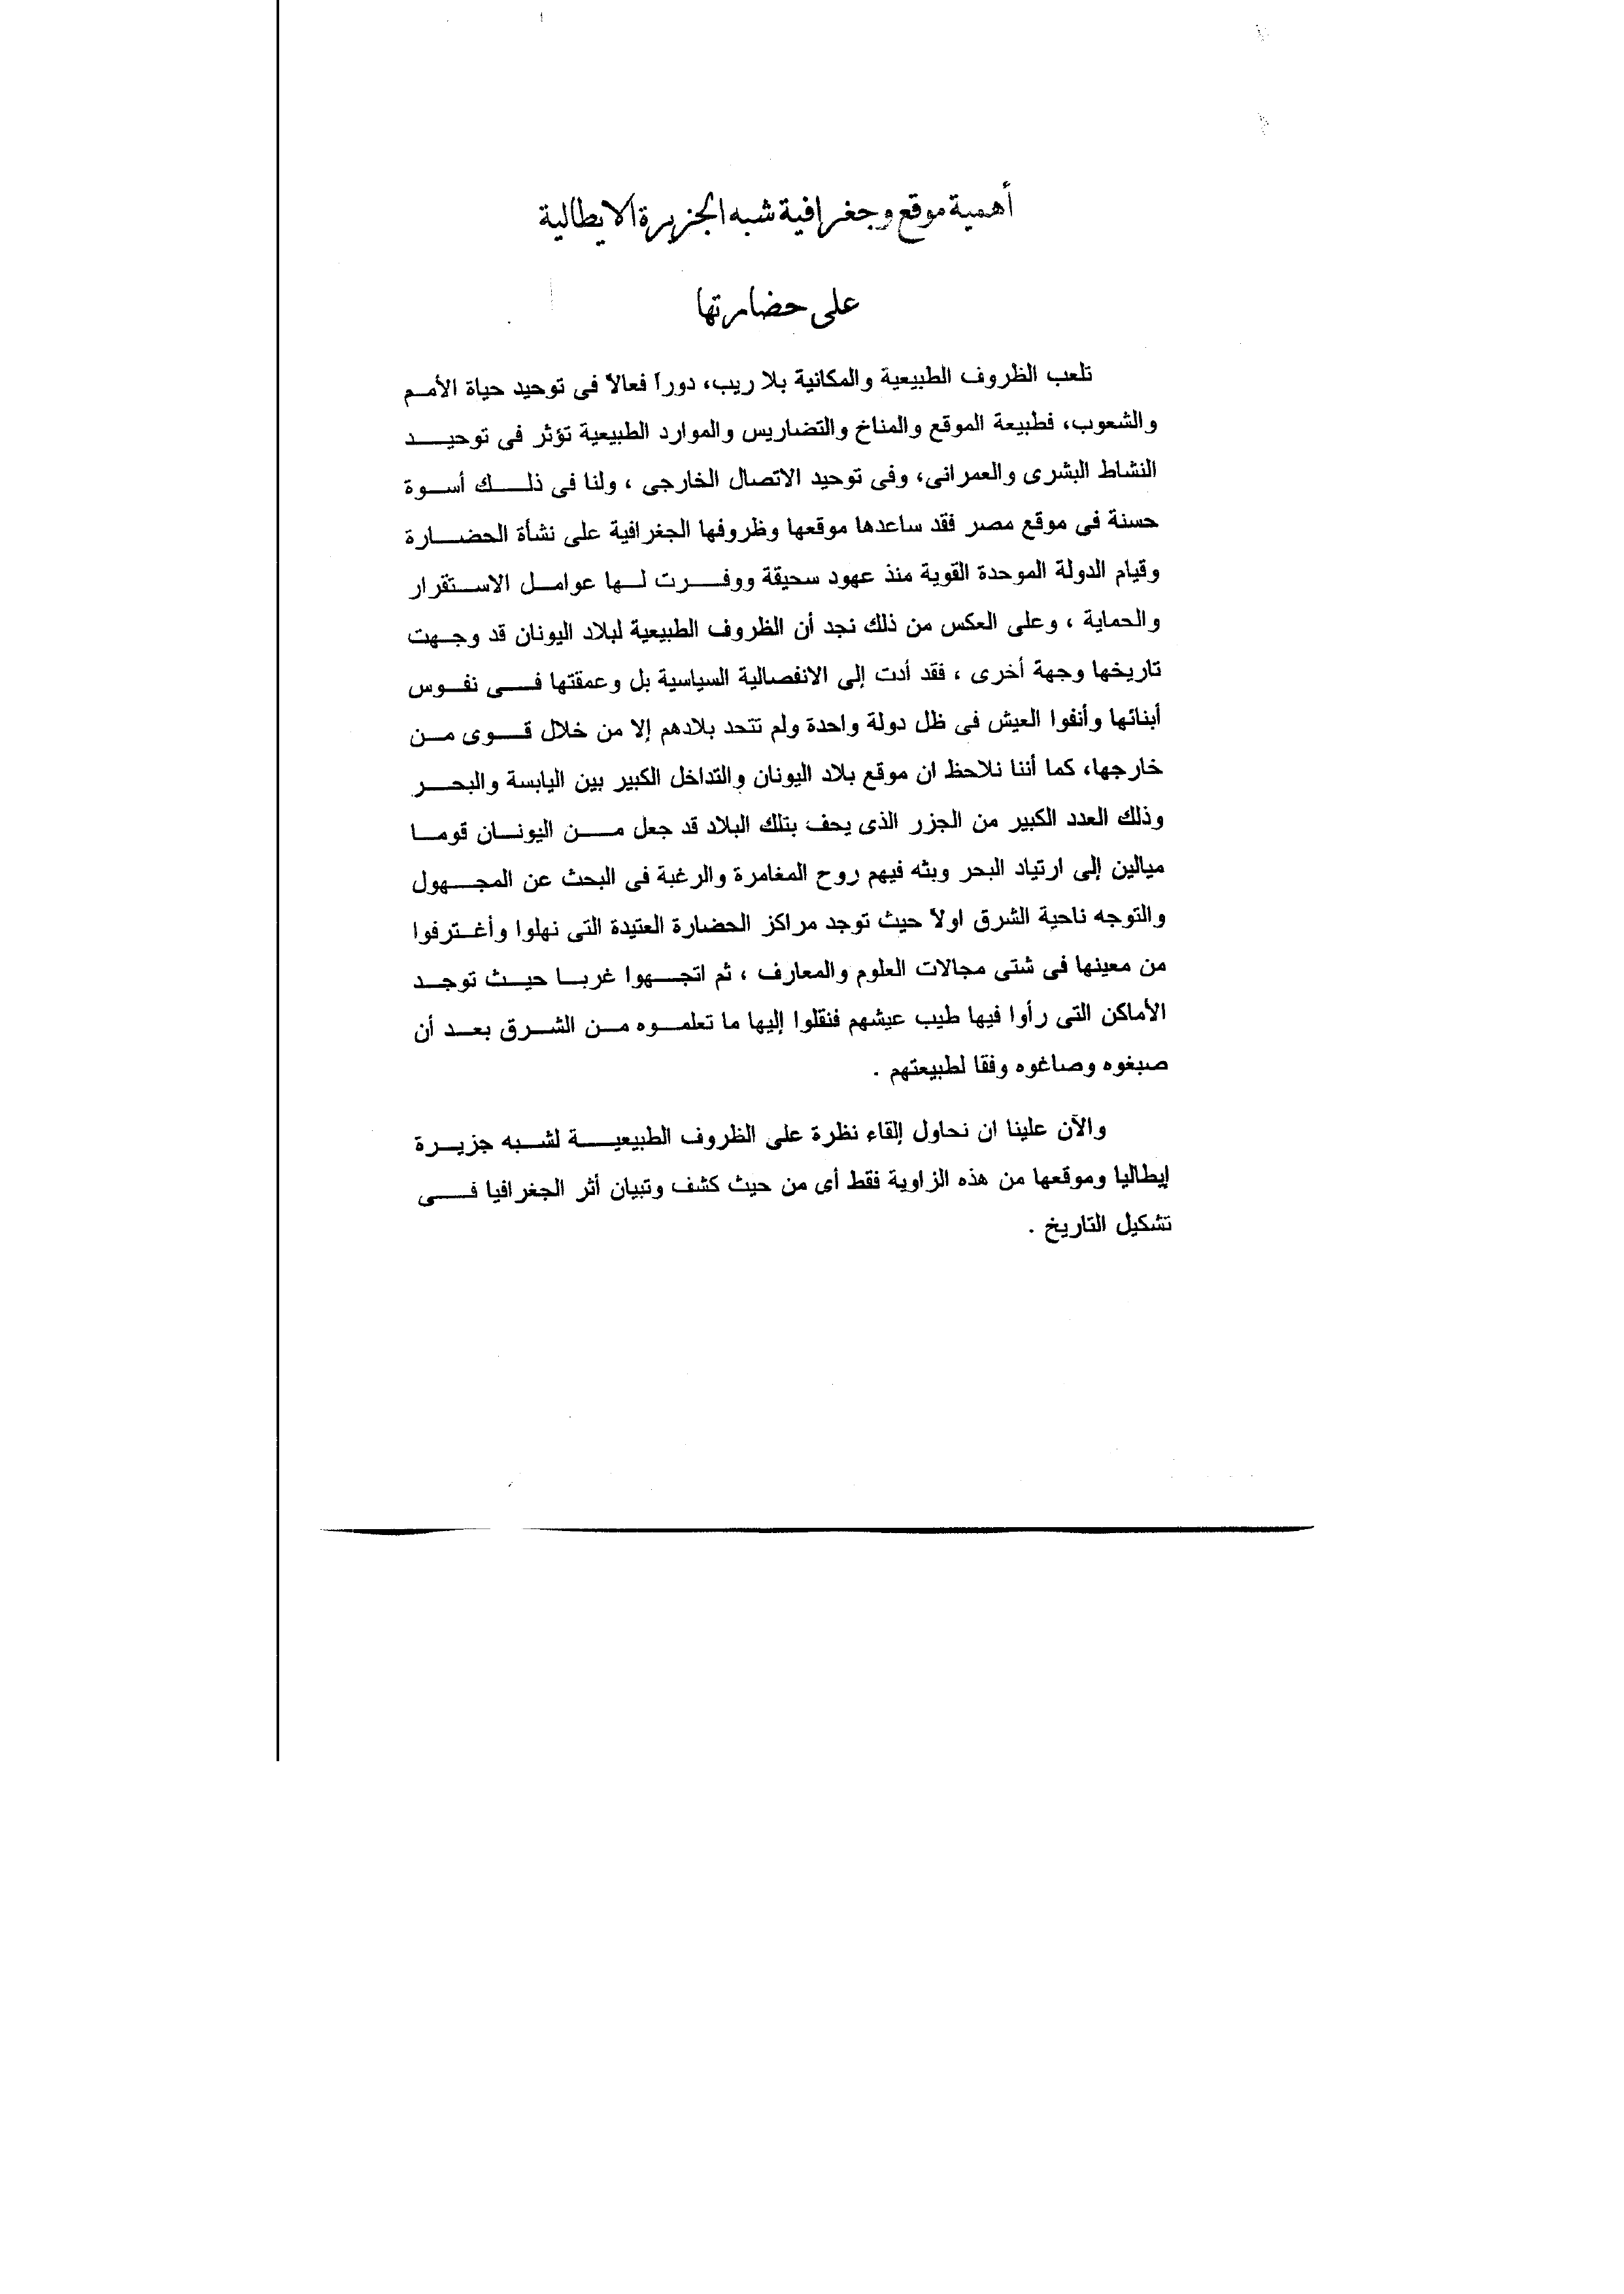 أهمية موقع وجغرافية شبه الجزيرة الايطالية
على حضارتها
تلعب الظروف الطبيعية والمكانية بلا ريب، دوراً فعالاً فى توحيد حياة الأمم
والشعوب، فطبيعة الموقع والمناخ والتضاريس والموارد الطبيعية تؤثر فى توحيد
النشاط البشرى والعمرانى، وفى توحيد الاتصال الخارجى ، ولنا فى ذلك أسوة
حسنة فى موقع مصر فقد ساعدها موقعها وظروفها الجغرافية على نشأة الحضارة
وقيام الدولة الموحدة القوية منذ عهود سحيقة ووفرت لها عوامل الاستقرار
والحماية ، وعلى العكس من ذلك نجد أن الظروف الطبيعية لبلاد اليونان قد وجهت
تاريخها وجهة أخرى ، فقد أدت إلى الانفصالية السياسية بل وعمقتها فى نفوس
أبنائها وأنفوا العيش فى ظل دولة واحدة ولم تتحد بلادهم إلا من خلال قوى من
خارجها، كما أننا نلاحظ ان موقع بلاد اليونان والتداخل الكبير بين اليابسة والبحر
وذلك العدد الكبير من الجزر الذى يحف بتلك البلاد قد جعل من اليونان قوما
ميالين إلى ارتياد البحر وبثه فيهم روح المغامرة والرغبة فى البحث عن المجهول
والتوجه ناحية الشرق اولاً حيث توجد مراكز الحضارة العتيدة التى نهلوا وأغترفوا
من معينها فى شتى مجالات العلوم والمعارف ، ثم اتجهوا غربا حيث توجد
الأماكن التى رأوا فيها طيب عيشهم فنقلوا إليها ما تعلموه من الشرق بعد أن
صبغوه وصاغوه وفقا لطبيعتهم .
والآن علينا ان نحاول إلقاء نظرة على الظروف الطبيعية لشبه جزيرة
إيطاليا وموقعها من هذه الزاوية فقط أى من حيث كشف وتبيان أثر الجغرافيا فى
تشكيل التاريخ .